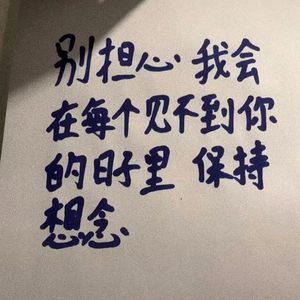 别担心 我会
在每个见不到你
的日子里 保持
想念